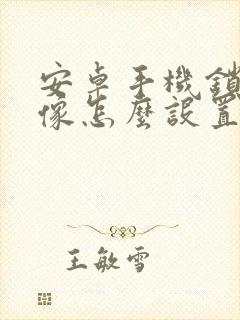 安卓手機鎖
像怎麼設置
王敏雪